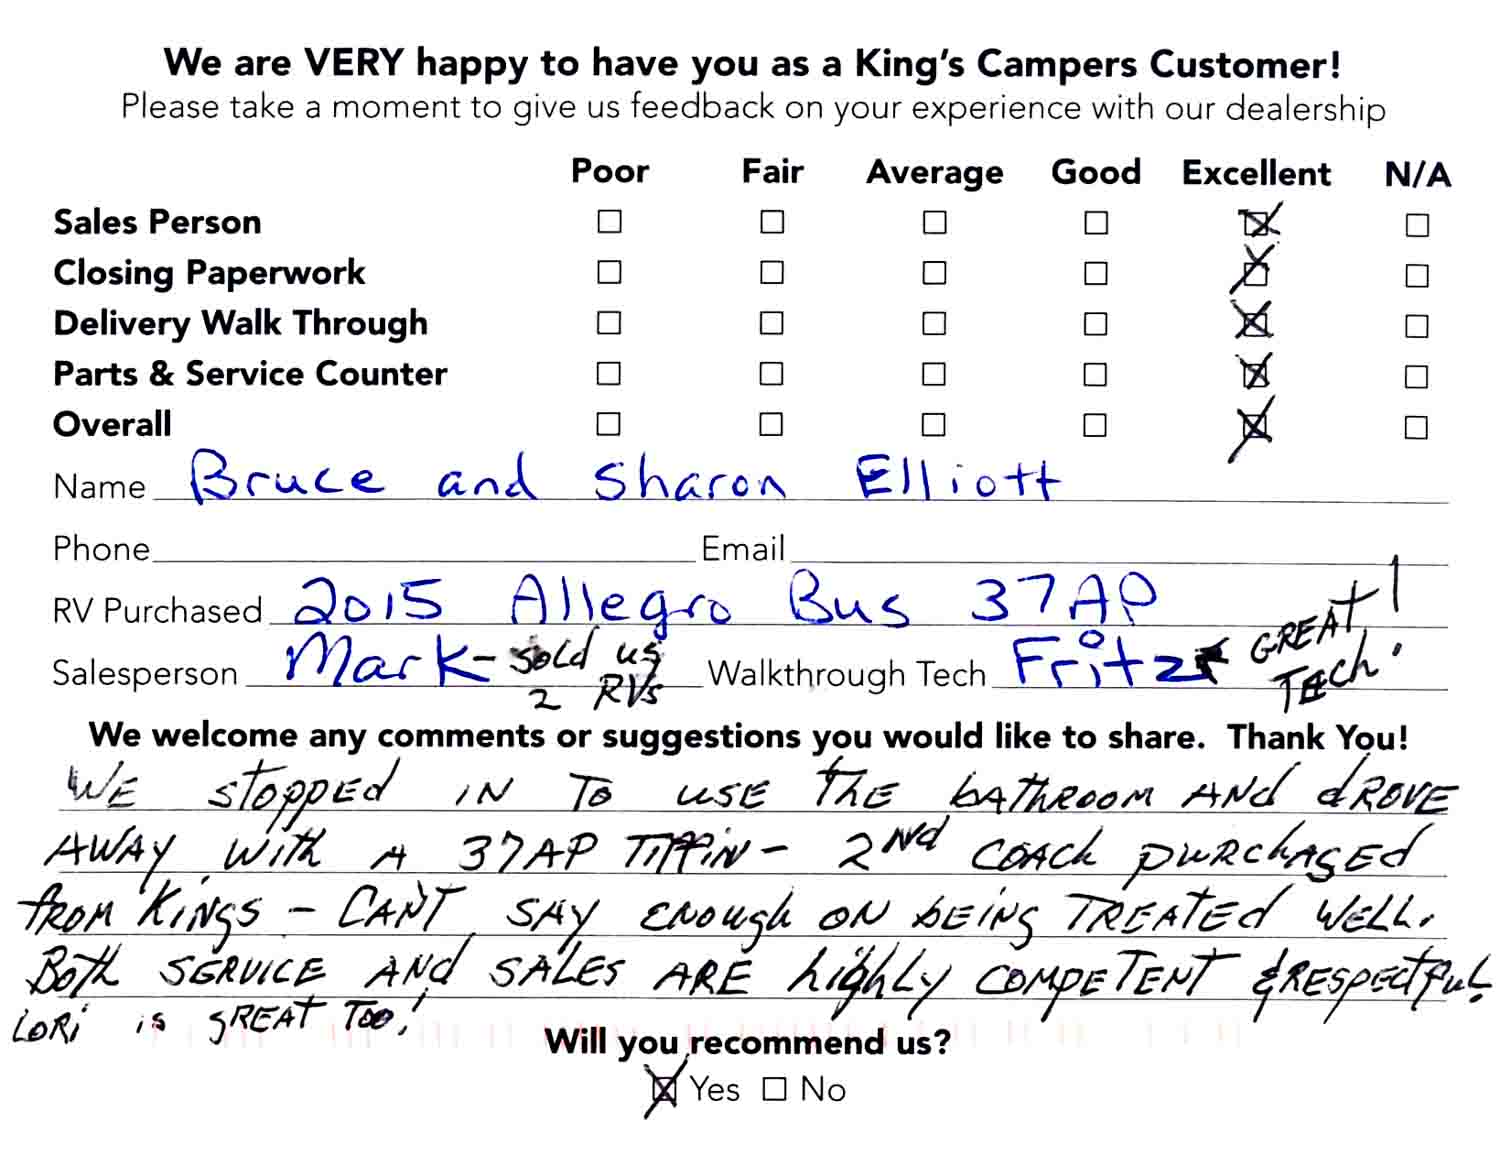 We are VERY happy to have you as a King's Campers Customer!
Please take a moment to give us feedback on your experience with our dealership
Poor Fair Average Good Excellent N/A
Sales Person
Closing Paperwork
Delivery Walk Through
Parts & Service Counter
Overall
Name Bruce and Sharon Elliott
Phone Email
RV Purchased 2015 Allegro Bus 37AP
Salesperson Mark - sold us 2 RVs Walkthrough Tech Fritz GREAT Tech!
We welcome any comments or suggestions you would like to share. Thank You!
WE stoppEd IN To USE ThE bAThROOM ANd dROVE
AWAY With A 37AP TiffiN - 2Nd COACh pURChASEd
fROM KiNgS - CAN'T SAY ENOUgh ON bEiNg TREATEd WELL.
Both SERVICE ANd SALES ARE highly COMPETENT & RESpECTfuL
LORi is gREAT Too!
Will you recommend us?
Yes No